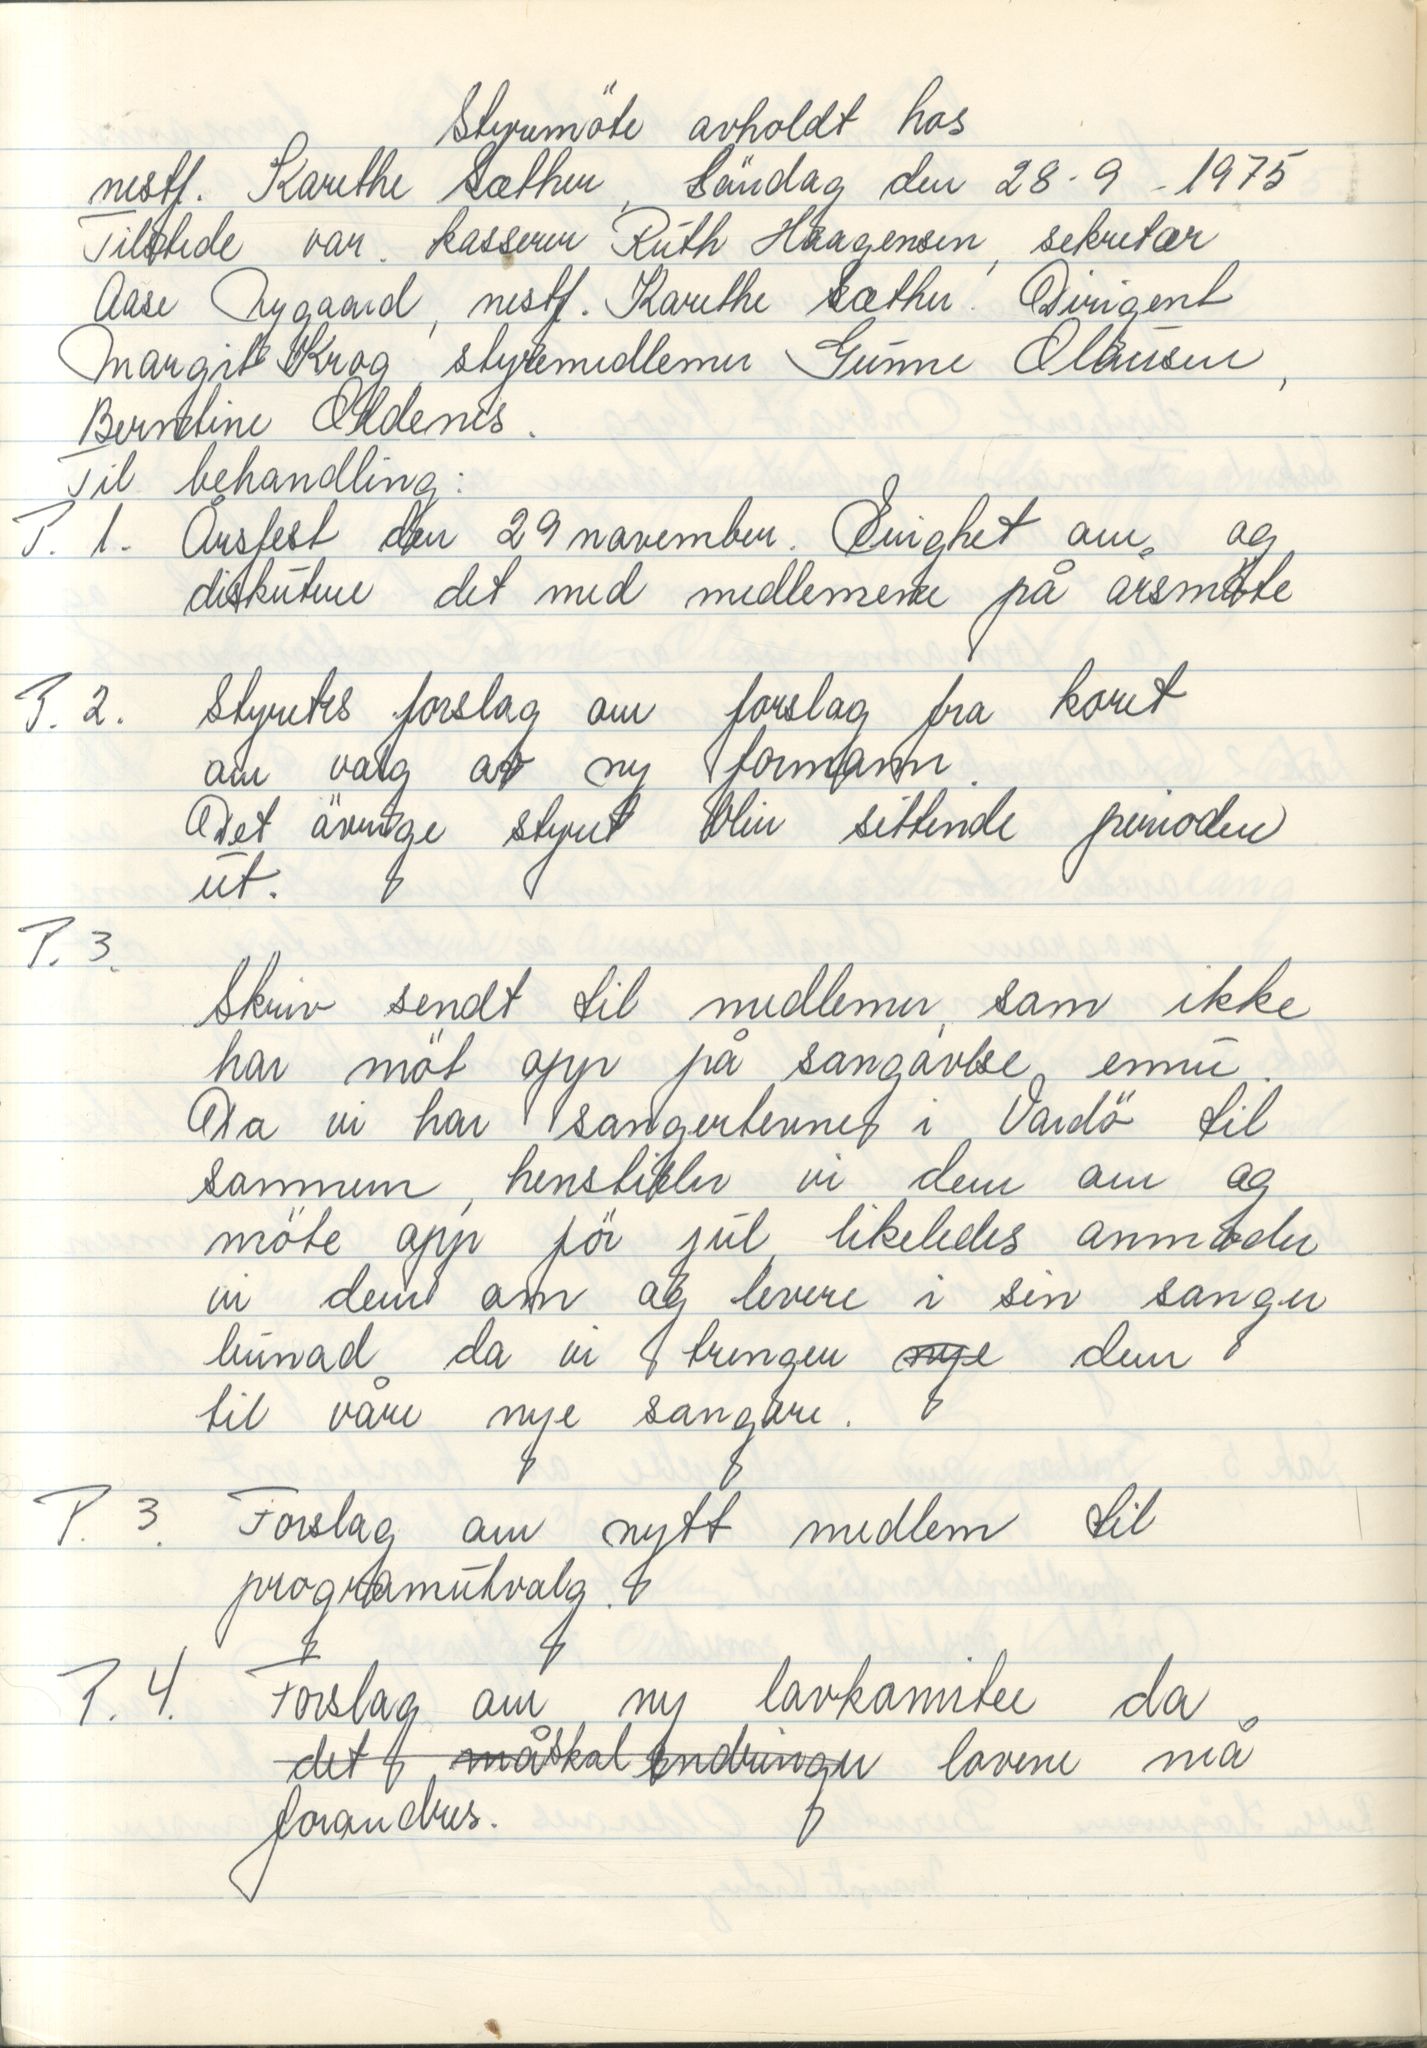 Styremöte avholdt hos
nestf. Karethe Sæther, Söndag den 28-9-1975
Tilstede var. kasserer Ruth Haagensen, sekretær
Aase Nygaard, nestf. Karethe Sæther. Dirigent
Margit Krog, styremedlemer Gunne Olaussen,
Berntine Oldenes.
Til behandling:
P. 1. Årsfest den 29 november. Enighet om og
diskutere det med medlemene på årsmöte
P. 2. Styrets forslag om forslag fra koret
om valg av ny formann.
Det övrige styret blir sittende perioden
ut.
P. 3.
Skriv sendt til medlemer, som ikke
har möt opp på sangövlse ennu.
Da vi har sangerstevne i Vardö til
sommeren, henstiller vi dem om og
möte opp för jul, likeledes anmoder
vi dem om og levere i sin sanger
bunad da vi trenger nye dem
til våre nye sangere.
P. 3. Forslag om nytt medlem til
programutvalg.
P. 4. Forslag om ny lovkomitee da
det må skal endringer lovene må
forandres.